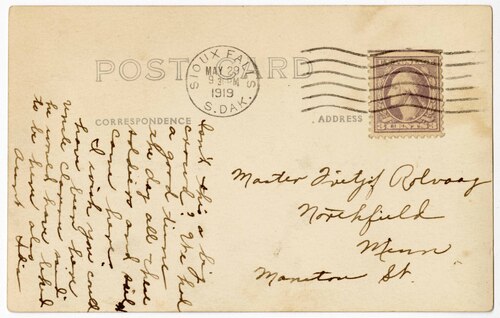 POST CARD
SIOUX FALLS
MAY 29
9 PM
1919
S. DAK.
CORRESPONDENCE
ADDRESS
3 CENTS 3
Isn't this a big
crowd? We had
a good time
the day all these
soldiers and
came here.
I wish you could
have been here
Uncle
he would have liked
to be here also
Aunt
Master Rolvaag
Northfield
Minn
Manitou St.